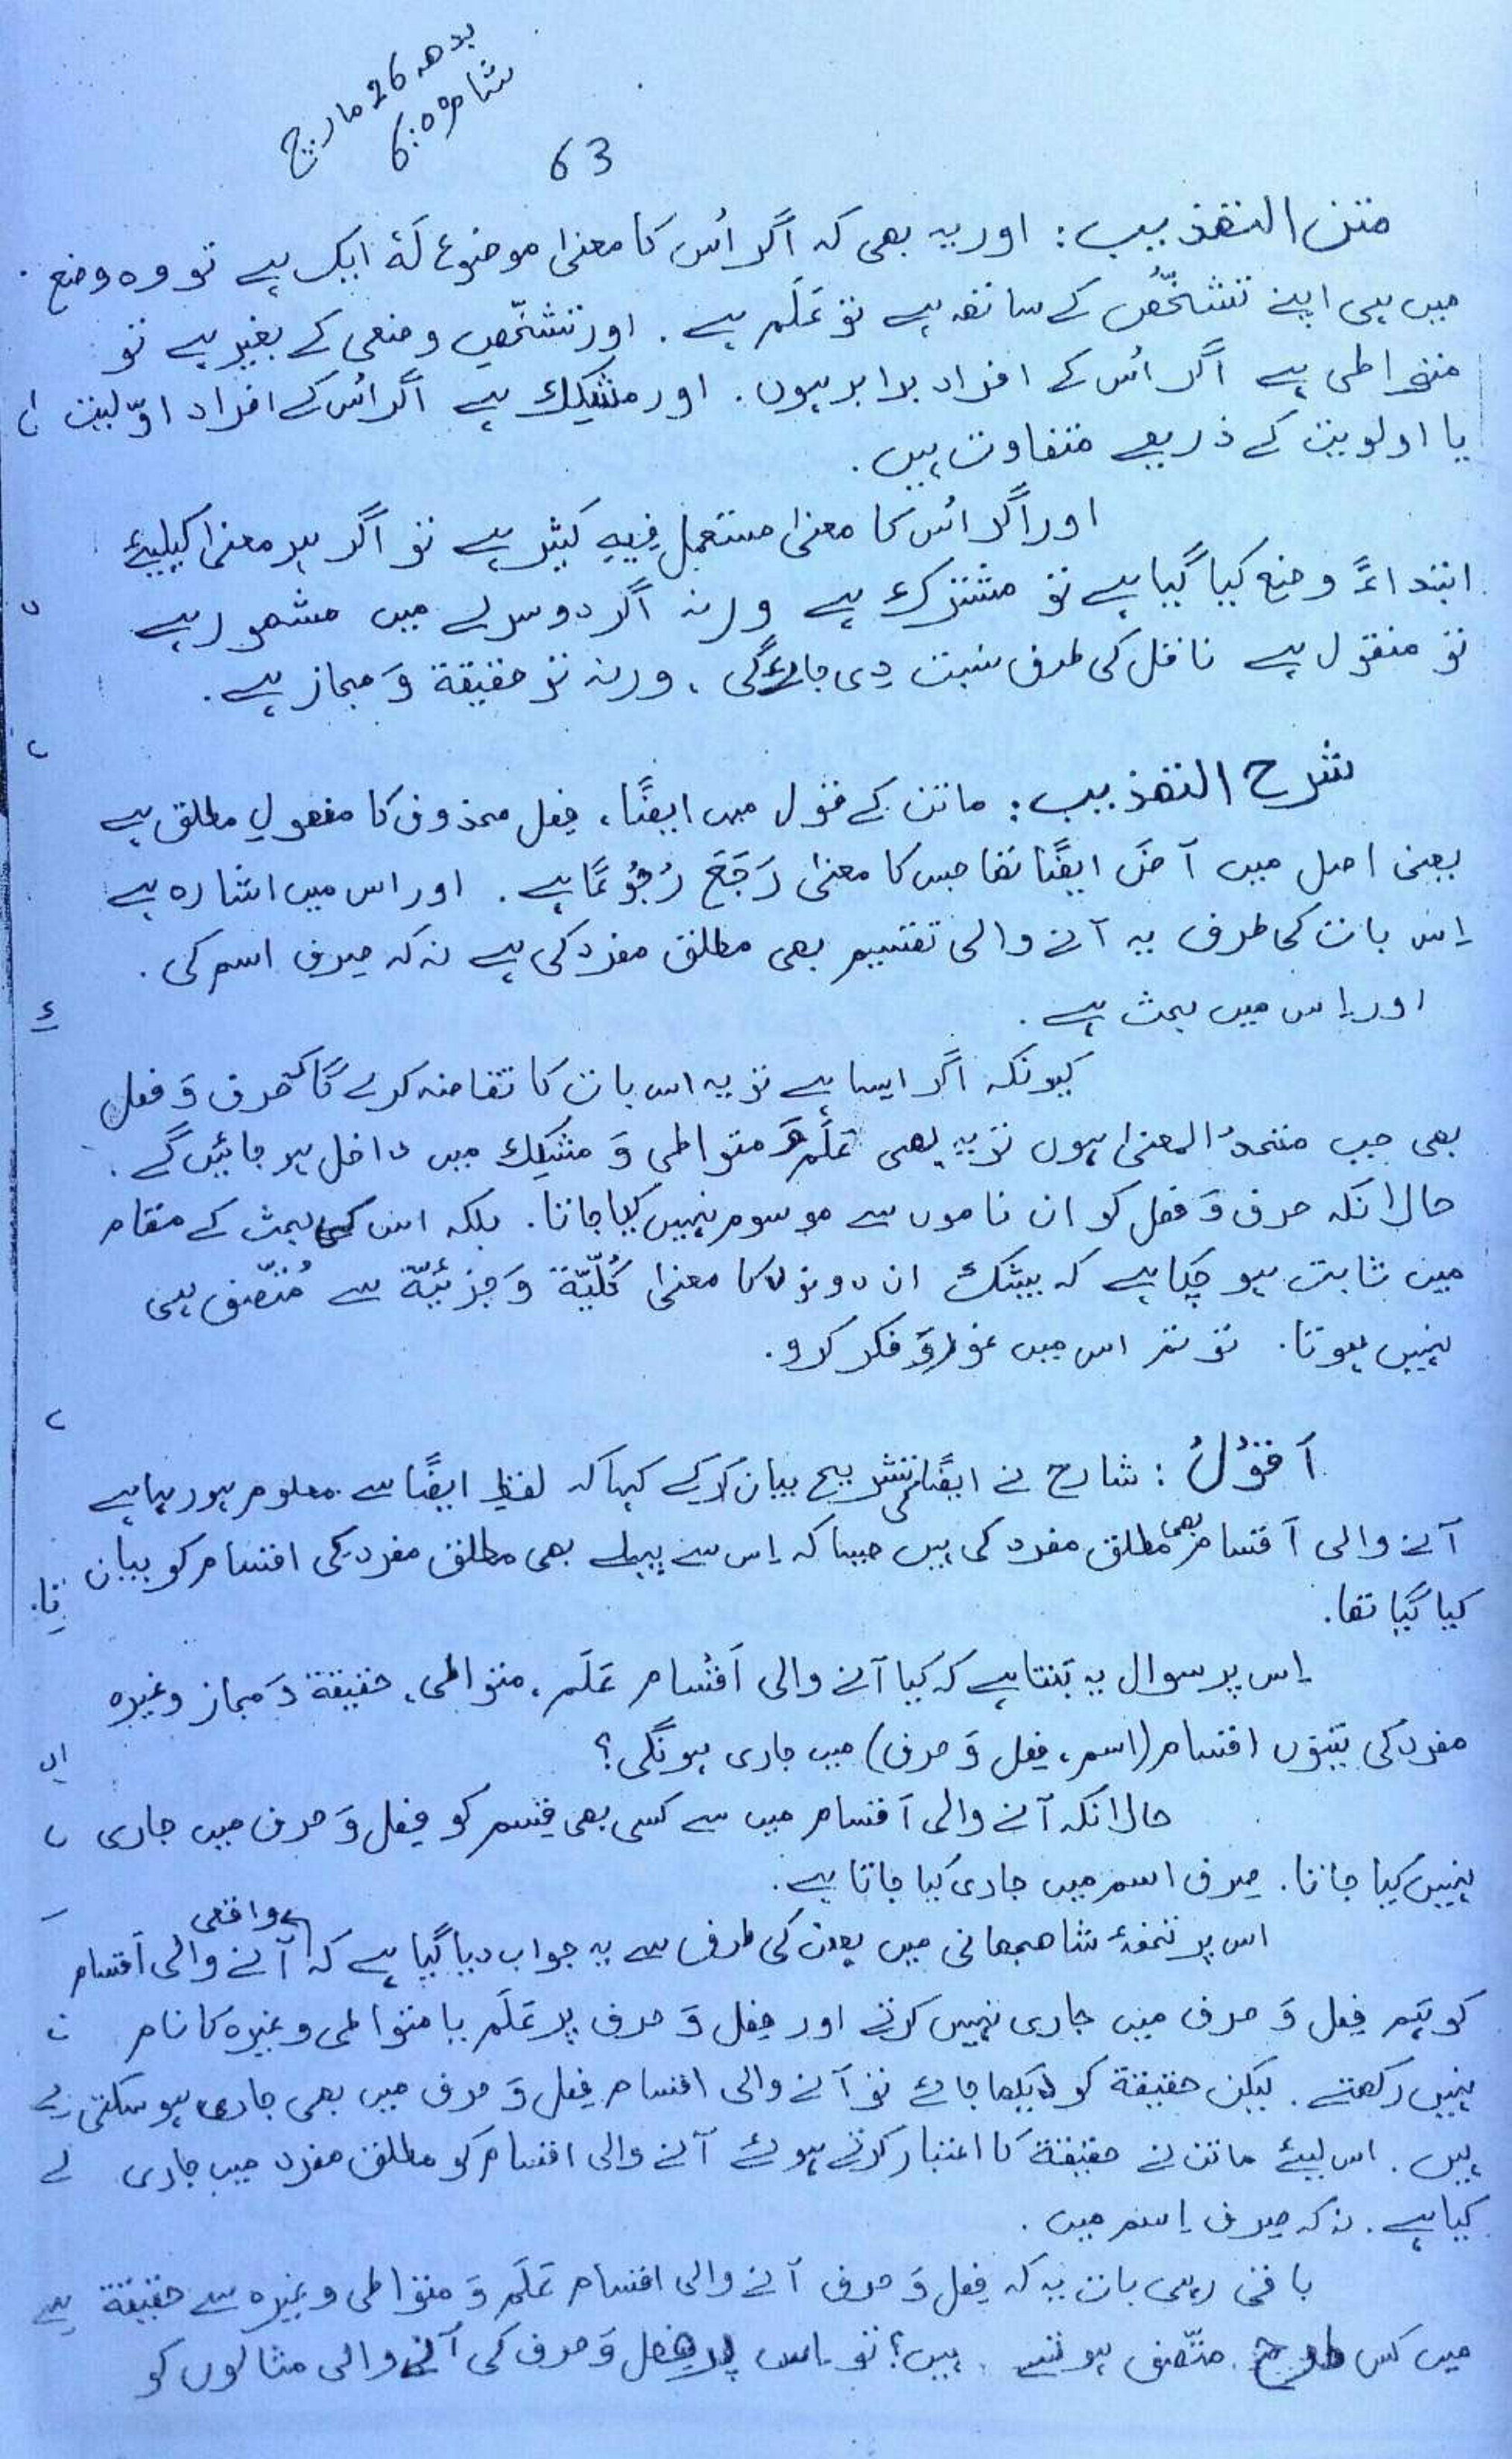 بدھ 26 مارچ
شام 6:00
63
متن التھذیب: اور یہ بھی کہ اگر اُس کا معنیٰ موضوع لَہٗ ایک ہے تو وہ وضع
میں ہی اپنے تشخّص کے ساتھ ہے تو عَلَم ہے. اور تشخّص وضعی کے بغیر ہے تو
متواطی ہے اگر اُس کے افراد برابر ہوں. اور مشکِک ہے اگر اُس کے افراد اوّلیت
یا اولویت کے ذریعے متفاوت ہیں.
اور اگر اُس کا معنیٰ مستعمل فِیہِ کثیر ہے تو اگر ہر معنیٰ کیلیئے
ابتداءً وضع کیا گیا ہے تو مشترک ہے ورنہ اگر دوسرے میں مشھور ہے
تو منقول ہے ناقل کی طرف نسبت دِی جائے گی، ورنہ تو حقیقۃ وَ مجاز ہے.
شرح التھذیب: ماتن کے قول میں ایضًا، فِعل محذوف کا مفعولِ مطلق ہے
یعنی اصل میں آضَ ایضًا تھا جس کا معنیٰ رَجَعَ رُجُوْعًا ہے. اور اس میں اشارہ ہے
اِس بات کی طرف یہ آنے والی تقسیم بھی مطلق مفرد کی ہے نہ کہ صِرف اسم کی.
اور اِس میں بحث ہے.
کیونکہ اگر ایسا ہے تو یہ اس بات کا تقاضہ کرے گا کہ حرف وَ فعل
بھی جب متحدُ المعنیٰ ہوں تو یہ بھی عَلَم وَ متواطی وَ مشکِک میں داخل ہو جائیں گے.
حالانکہ حرف وَ فعل کو ان ناموں سے موسوم نہیں کیا جاتا. بلکہ اس کی بحث کے مقام
میں ثابت ہو چکا ہے کہ بیشک ان دونوں کا معنیٰ کُلِّیّۃ وَ جزئیّۃ سے مُتّصف ہی
نہیں ہوتا. تو تم اس میں غور وَ فکر کرو.
اَقُوْلُ: شارح نے ایضًا کی تشریح بیان کر کے کہا کہ لفظِ ایضًا سے معلوم ہو رہا ہے
آنے والی اَقسام بھی مطلق مفرد کی ہیں جیسا کہ اِس سے پہلے بھی مطلق مفرد کی اقسام کو بیان
کیا گیا تھا.
اِس پر سوال یہ بَنتا ہے کہ کیا آنے والی اَقْسام عَلَم، متواطی، حقیقۃ وَ مجاز وغیرہ
مفرد کی تینوں اقسام (اسم، فِعل وَ حرف) میں جاری ہونگی؟
حالانکہ آنے والی اَقسام میں سے کسی بھی قِسم کو فِعل وَ حرف میں جاری
نہیں کیا جاتا. صِرف اسم میں جاری کیا جاتا ہے.
اس پر تحفۂ شاھجھانی میں بعض کی طرف سے یہ جواب دیا گیا ہے کہ واقعی آنے والی اَقسام
کو ہَم فِعل وَ حرف میں جاری نہیں کرتے اور فِعل وَ حرف پر عَلَم یا متواطی وغیرہ کا نام
نہیں رکھتے. لیکن حقیقۃ کو دیکھا جائے تو آنے والی اقسام فِعل وَ حرف میں بھی جاری ہو سکتی
ہیں. اس لیئے ماتن نے حقیقۃ کا اعتبار کرتے ہوئے آنے والی اقسام کو مطلق مفرد میں جاری
کیا ہے. نہ کہ صِرف اِسم میں.
باقی رہی بات یہ کہ فِعل وَ حرف آنے والی اقسام عَلَم وَ متواطی وغیرہ سے حقیقۃ
میں کس طرح متّصف ہوتے ہیں؟ تو اس پر فعل وَ حرف کی آنے والی مثالوں کو